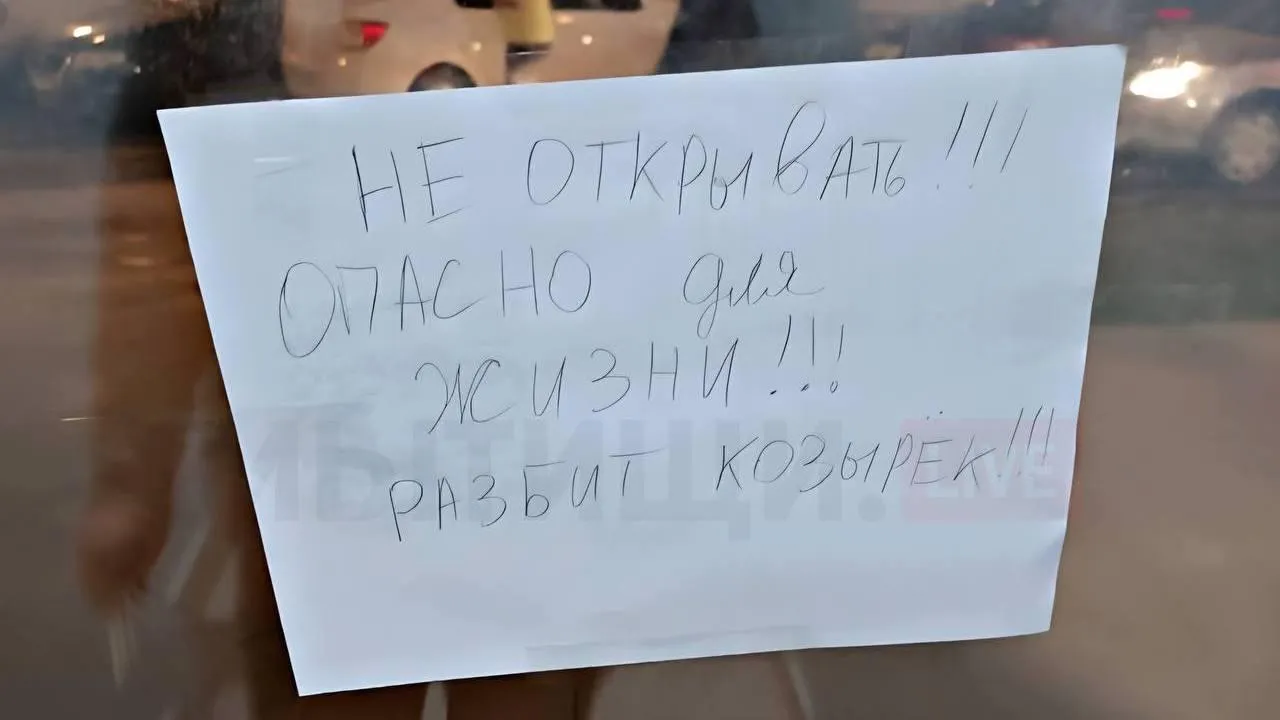 НЕ ОТКРЫВАТЬ!!!
ОПАСНО для
ЖИЗНИ!!!
РАЗБИТ КОЗЫРЁК!!!
МЫТИЩИ. LIVE